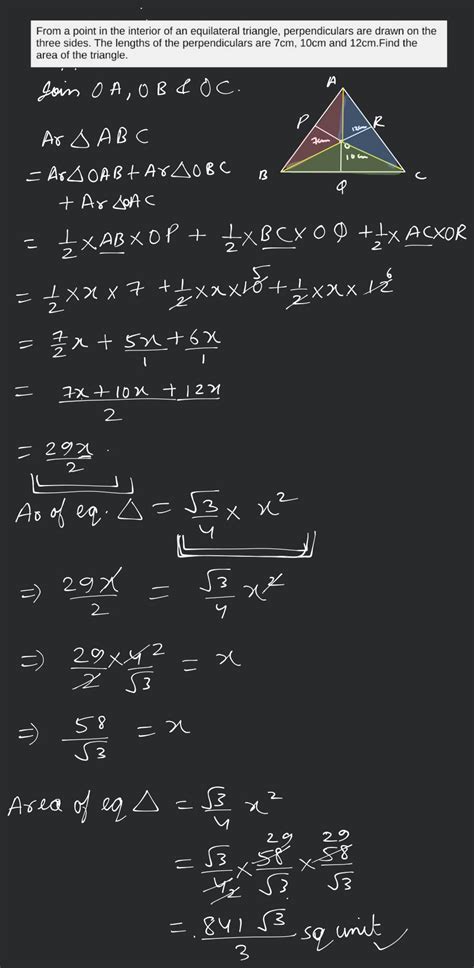 From a point in the interior of an equilateral triangle, perpendiculars are drawn on the
three sides. The lengths of the perpendiculars are 7cm, 10cm and 12cm.Find the
area of the triangle.
Join OA, OB & OC.
A
P
R
7cm
12cm
O
10cm
B
Q
C
Ar △ ABC
= Ar△OAB + Ar△OBC
+ Ar △OAC
= 1/2 × AB × OP + 1/2 × BC × OQ + 1/2 × AC × OR
= 1/2 × x × 7 + 1/2 × x × 10 5 + 1/2 × x × 12 6
= 7/2 x + 5x/1 + 6x/1
= (7x + 10x + 12x)/2
= 29x/2 .
Ar of eq. △ = √3/4 × x²
⇒ 29x/2 = √3/4 x²
⇒ 29/2 × 4 2/√3 = x
⇒ 58/√3 = x
Area of eq △ = √3/4 x²
= √3/4 2 × 58 29/√3 × 58 29/√3
= 841 √3/3 sq unit